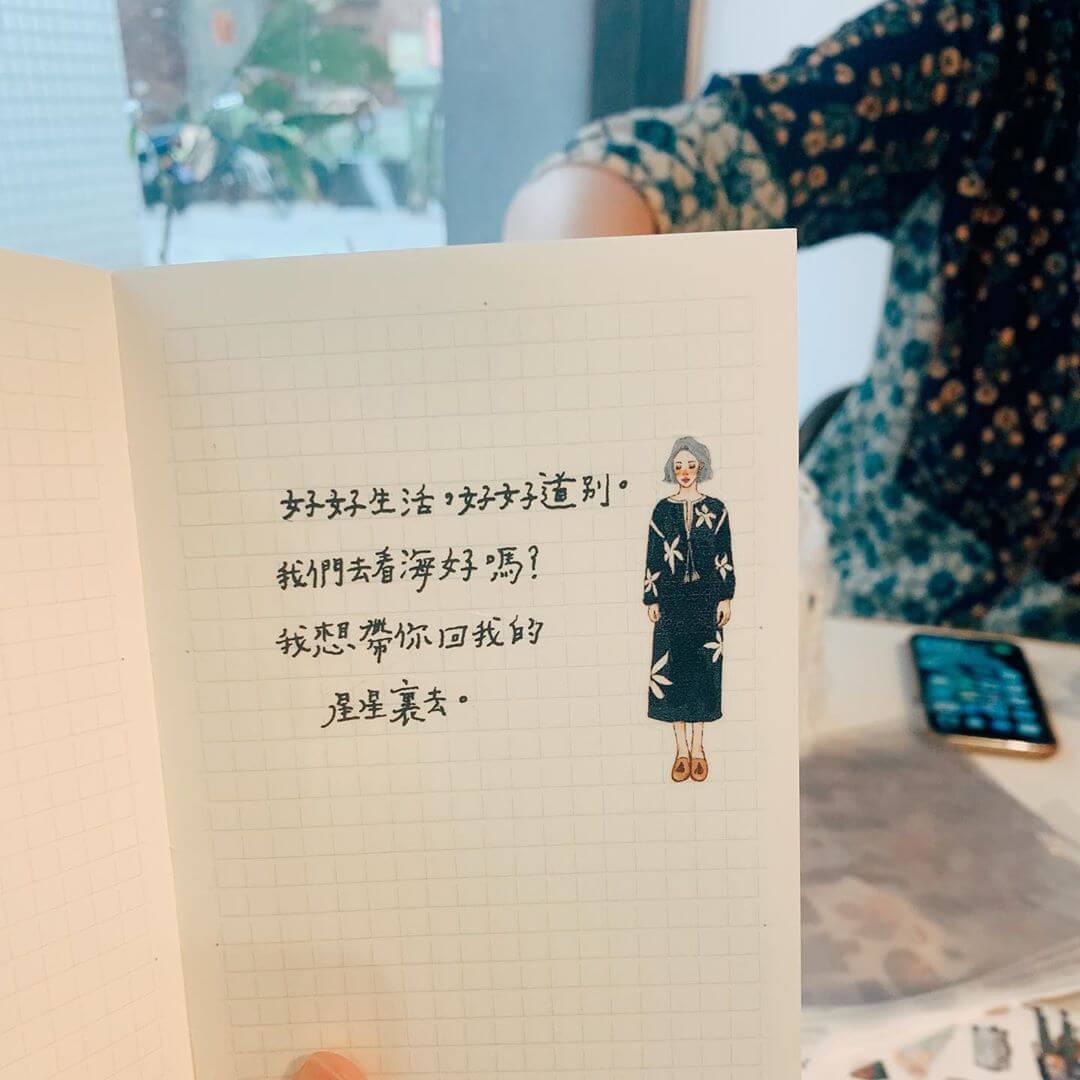 好好生活，好好道別。
我們去看海好嗎？
我想帶你回我的
星星裏去。